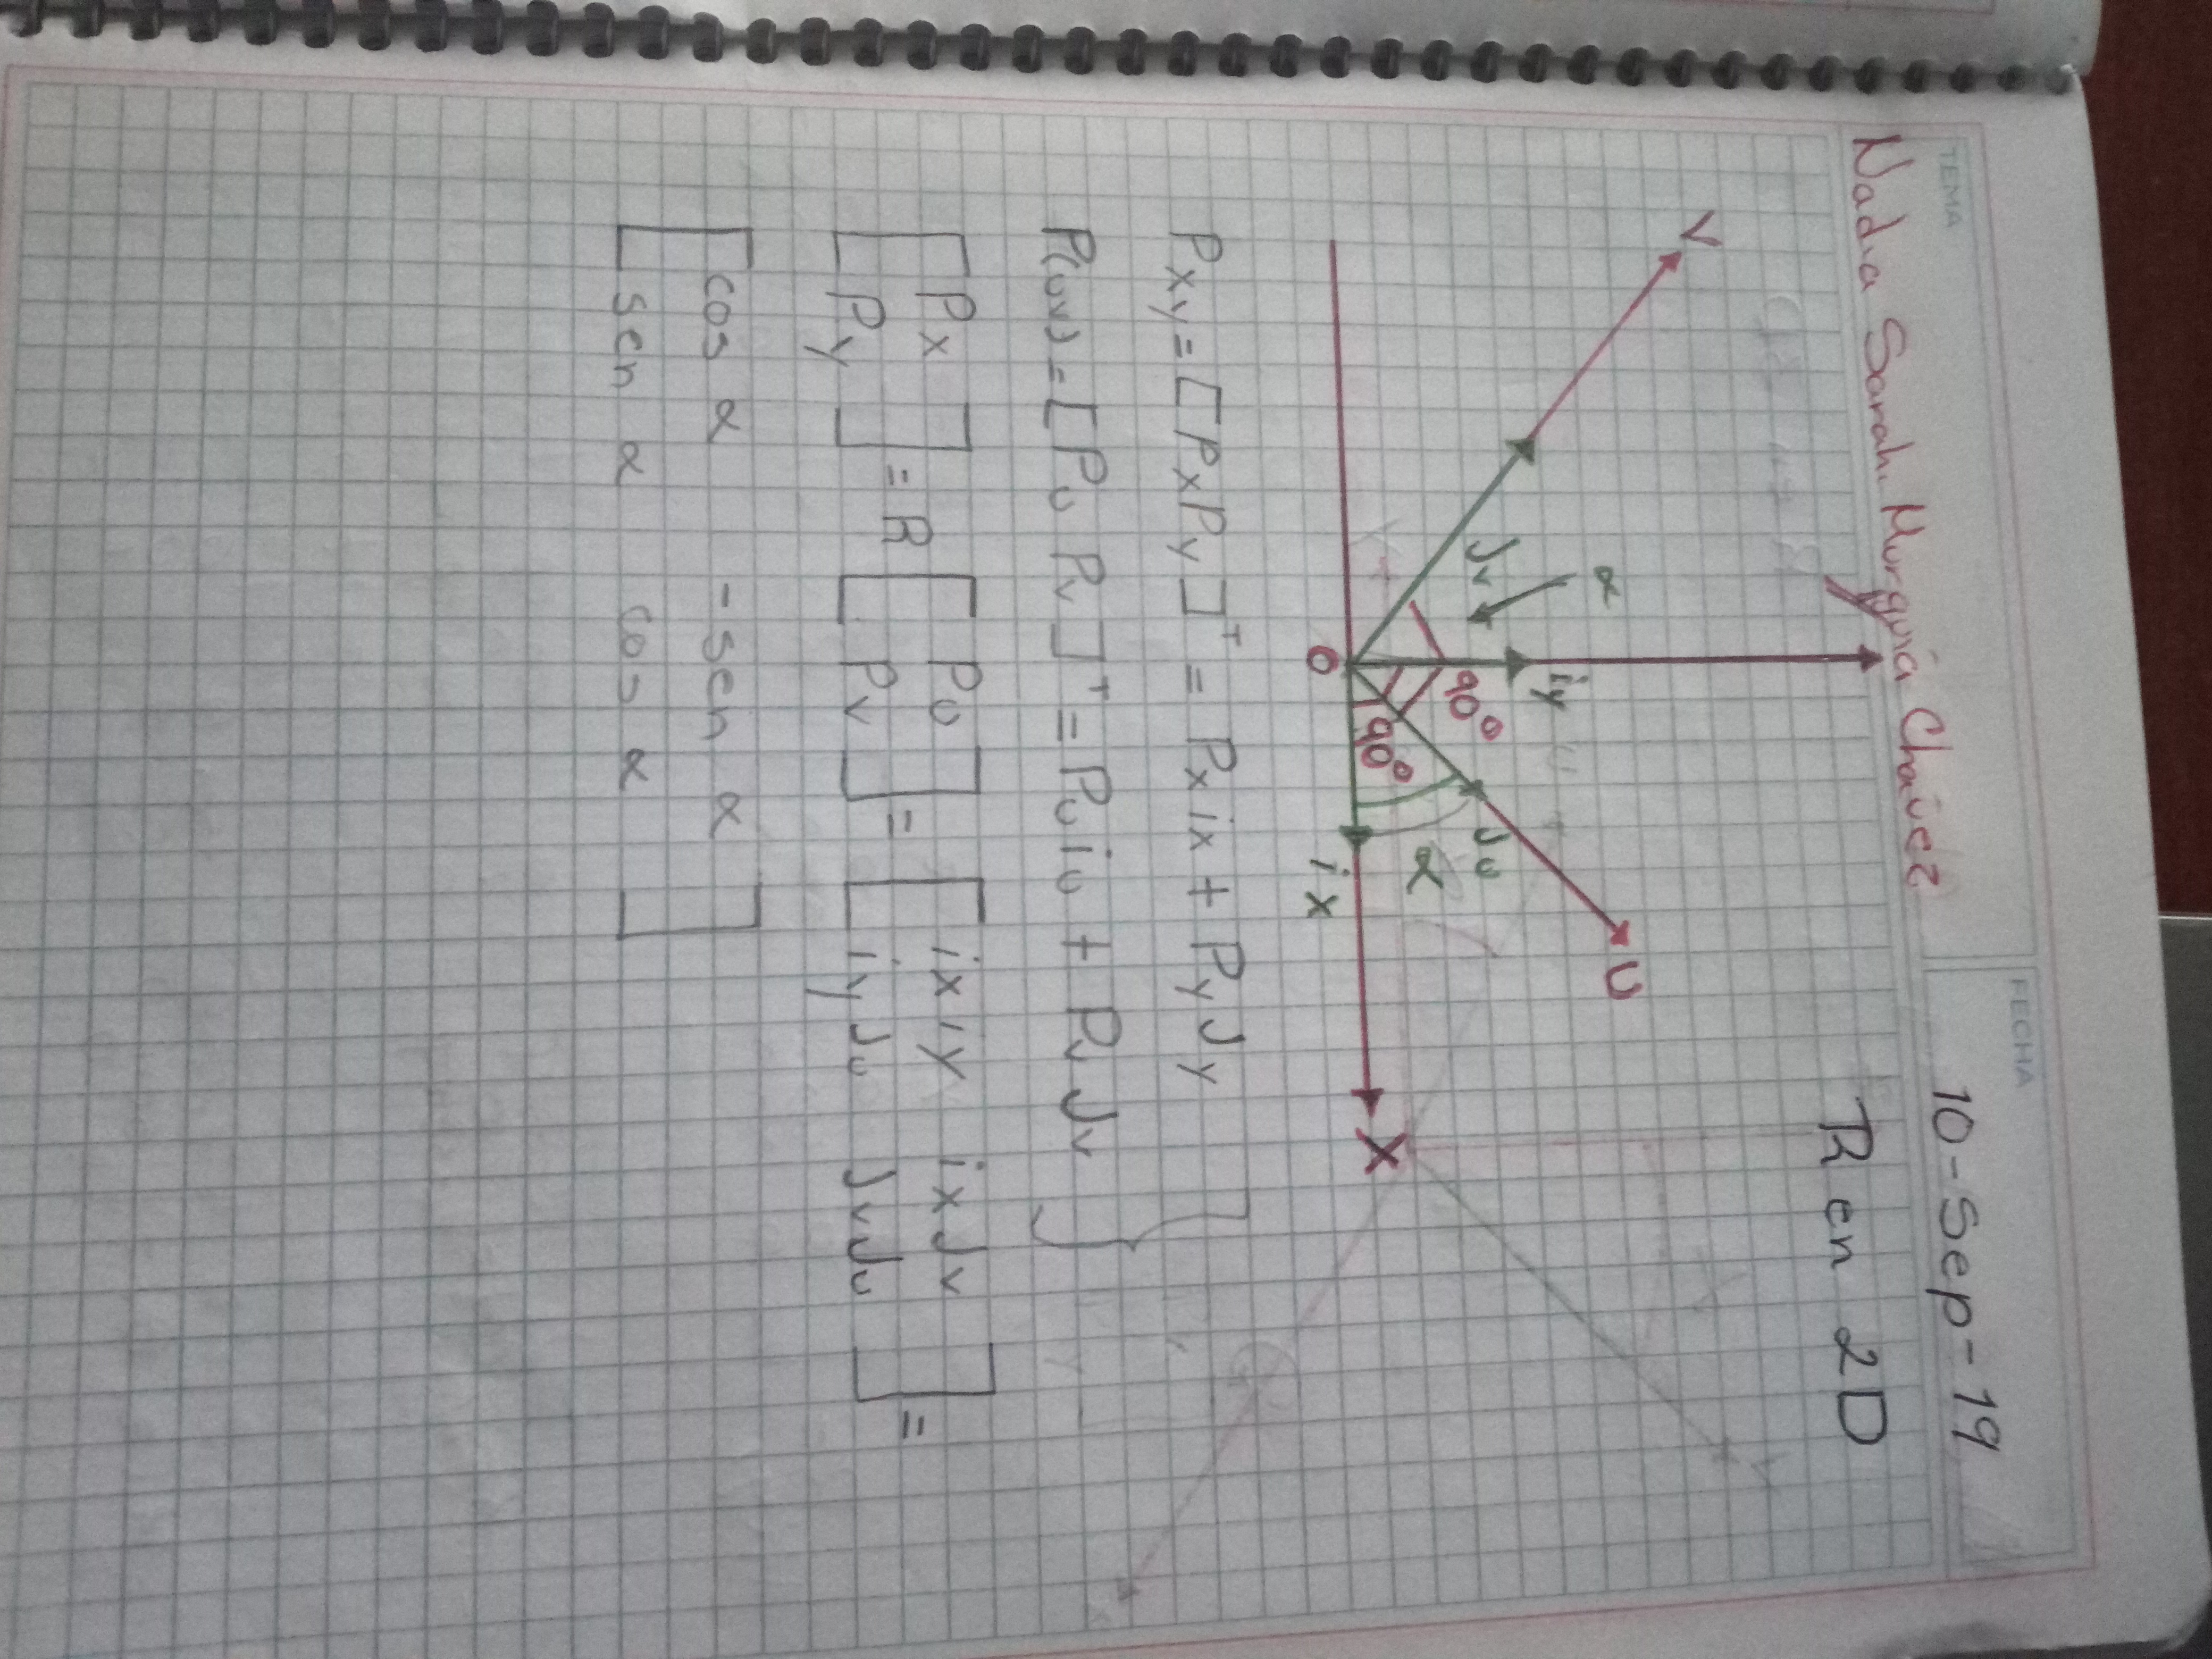 TEMA
FECHA
Nadia Sarahi Murguia Chavez
10-Sep-19
R en 2D
V
U
α
Jv
iy
90°
90°
Ju
α
O
ix
X
Pxy = [Px Py]ᵀ = Px ix + Py Jy
P(uv) = [Pu Pv]ᵀ = Pu iu + Pv Jv
[Px Py] = R [Pu Pv] = [ix iy ixJv
iyJu JvJu] =
[cos α -sen α
sen α cos α]